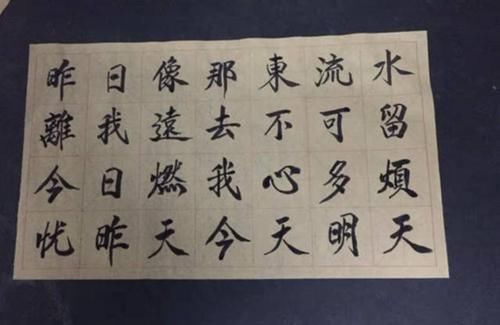 昨日像那東流水
離我遠去不可留
今日燃我心多煩
忧昨天今天明天